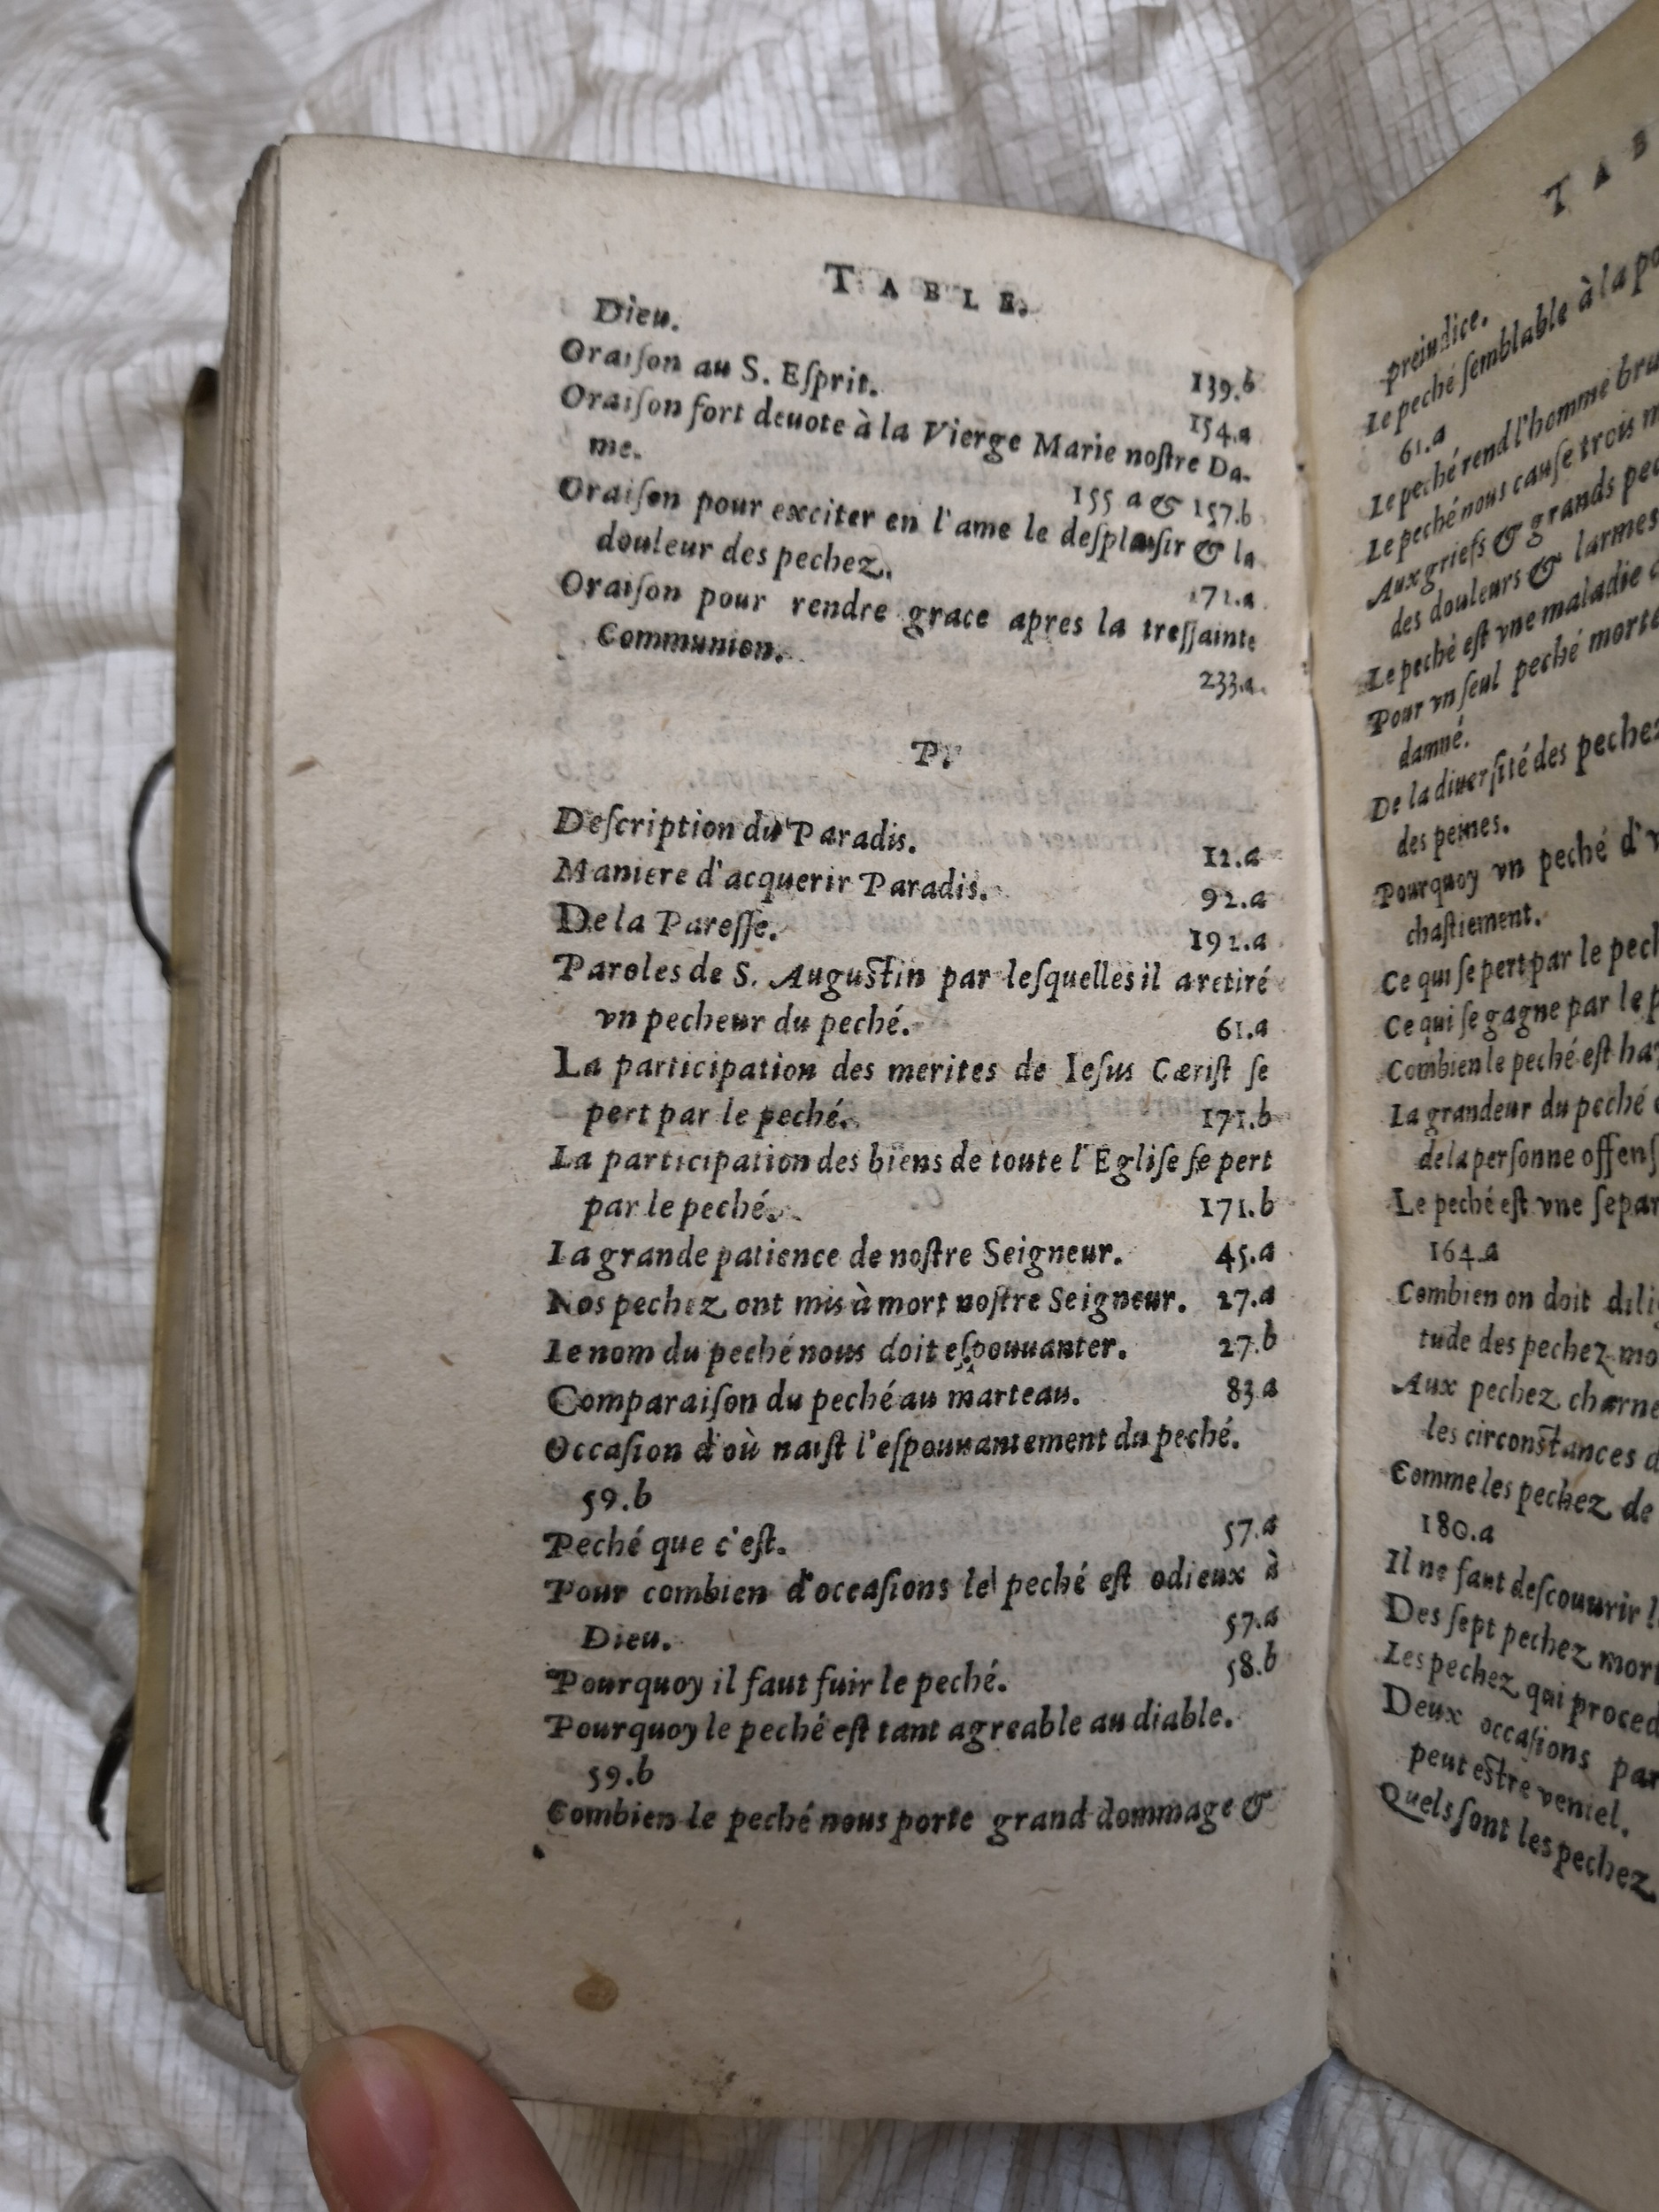 TABLE.
Dieu. 139.b
Oraiſon au S. Eſprit. 154.a
Oraiſon fort deuote à la Vierge Marie noſtre Da-
me. 155 a & 157.b
Oraiſon pour exciter en l'ame le deſplaiſir & la
douleur des pechez. 171.a
Oraiſon pour rendre grace apres la treſſainte
Communion. 233.a
P.
Deſcription du Paradis. 12.a
Maniere d'acquerir Paradis. 92.a
De la Pareſſe. 192.a
Paroles de S. Auguſtin par leſquelles il a retiré
vn pecheur du peché. 61.a
La participation des merites de Ieſus Cæriſt ſe
pert par le peché. 171.b
La participation des biens de toute l'Egliſe ſe pert
par le peché. 171.b
La grande patience de noſtre Seigneur. 45.a
Nos pechez ont mis à mort noſtre Seigneur. 27.a
Le nom du peché nous doit eſpouuanter. 27.b
Comparaiſon du peché au marteau. 83.a
Occaſion d'où naiſt l'eſpouuantement du peché.
59.b
Peché que c'eſt. 57.a
Pour combien d'occaſions le peché eſt odieux à
Dieu. 57.a
Pourquoy il faut fuir le peché. 58.b
Pourquoy le peché eſt tant agreable au diable.
59.b
Combien le peché nous porte grand dommage &
TAB
preiudice.
Le peché ſemblable à la
61.a
Le peché rend l'homme
Le peché nous cauſe trois
Aux griefs & grands
des douleurs & larmes
Le peché eſt vne maladie
Pour vn ſeul peché
damné.
De la diuerſité des pechez
des peines.
Pourquoy vn peché
chaſtiement.
Ce qui ſe pert par le
Ce qui ſe gagne par le
Combien le peché eſt
La grandeur du peché
de la perſonne
Le peché eſt vne
164.a
Combien on doit
tude des pechez
Aux pechez
les circonſtances
Comme les pechez de
180.a
Il ne faut deſcouurir
Des ſept pechez
Les pechez qui
Deux occaſions
peut eſtre veniel.
Quels ſont les pechez